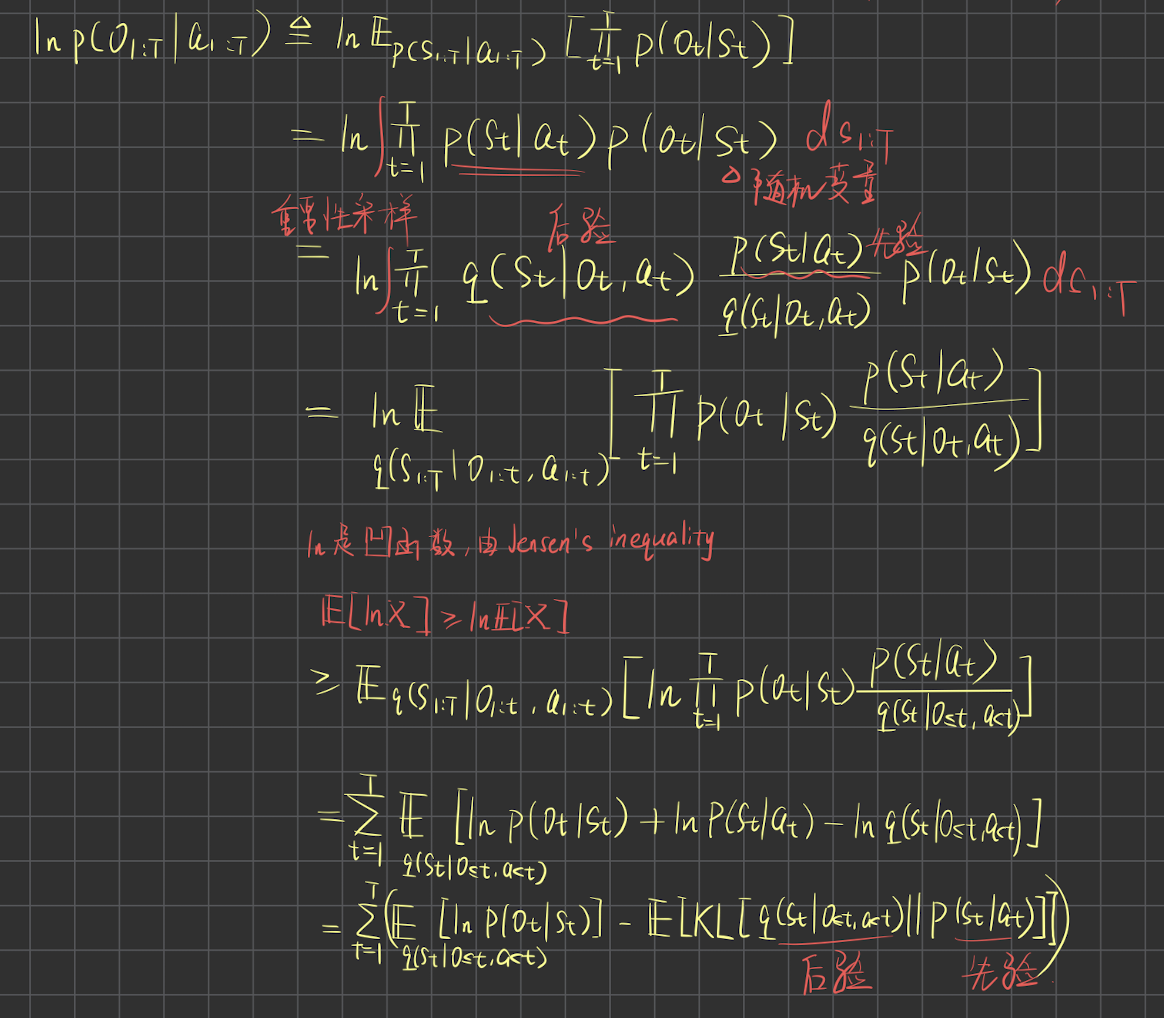 ln p(O₁:T | a₁:T) ≜ ln 𝔼_p(S₁:T|a₁:T) [∏_{t=1}^{T} p(Ot|St)]
= ln ∫ ∏_{t=1}^{T} p(St|at) p(Ot|St) dS₁:T
△ 随机变量
重要性采样 后验 先验
= ln ∫ ∏_{t=1}^{T} q(St|Ot, at) p(St|at) / q(St|Ot, at) p(Ot|St) dS₁:T
= ln 𝔼_q(S₁:T|O₁:t, a₁:t) [∏_{t=1}^{T} p(Ot|St) p(St|at) / q(St|Ot, at)]
ln是凹函数, 由Jensen's inequality
𝔼[ln X] ≥ ln 𝔼[X]
≥ 𝔼_q(S₁:T|O₁:t, a₁:t) [ln ∏_{t=1}^{T} p(Ot|St) p(St|at) / q(St|O≤t, a<t)]
= ∑_{t=1}^{T} 𝔼_q(St|O≤t, a<t) [ln p(Ot|St) + ln P(St|at) − ln q(St|O≤t, a<t)]
= ∑_{t=1}^{T} (𝔼_q(St|O≤t, a<t) [ln p(Ot|St)] − 𝔼[KL[q(St|O≤t, a<t) || P(St|at)]])
后验 先验